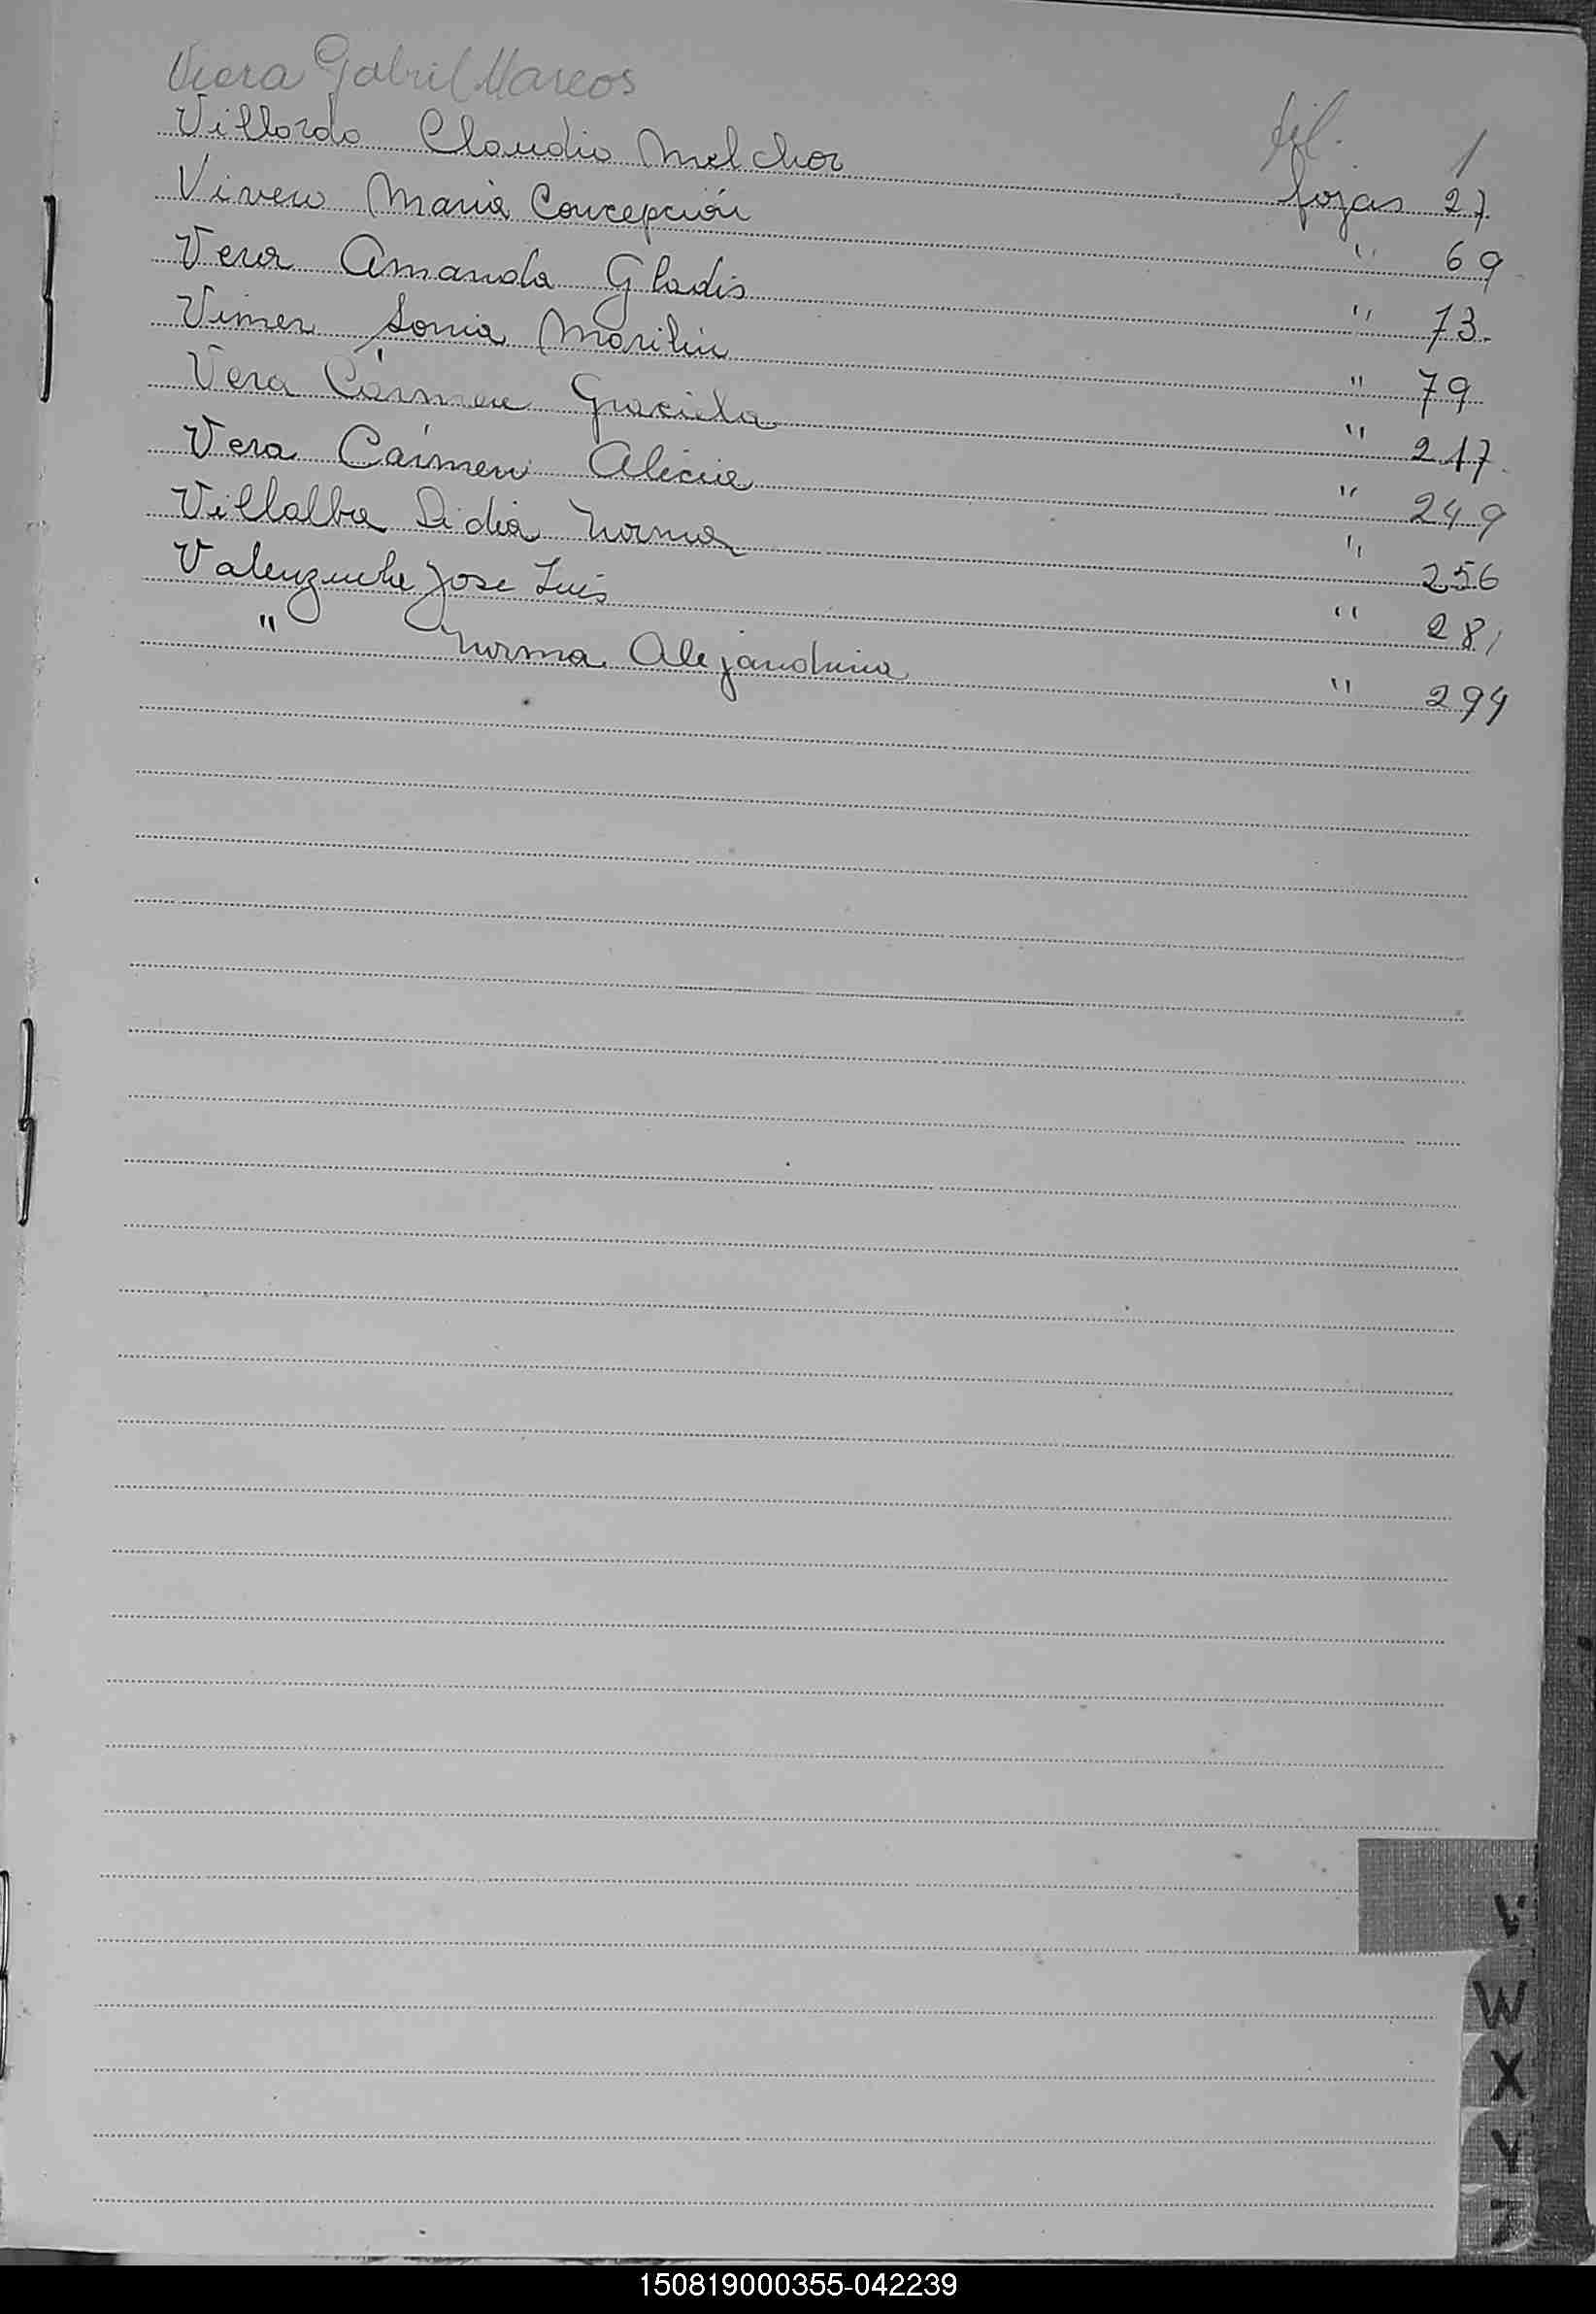 Viera Gabriel Marcos fol. 1
Villordo Claudio Melchor fojas 27
Vivero Maria Concepción " 69
Vera Amanda Gladis " 73
Vimer Sonia Marilin " 79
Vera Cármen Graciela " 217
Vera Cármen Alicia " 249
Villalba Lidia Norma " 256
Valenzuela Jose Luis " 281
" Norma Alejandrina " 294
V
W
X
Y
Z
150819000355-042239